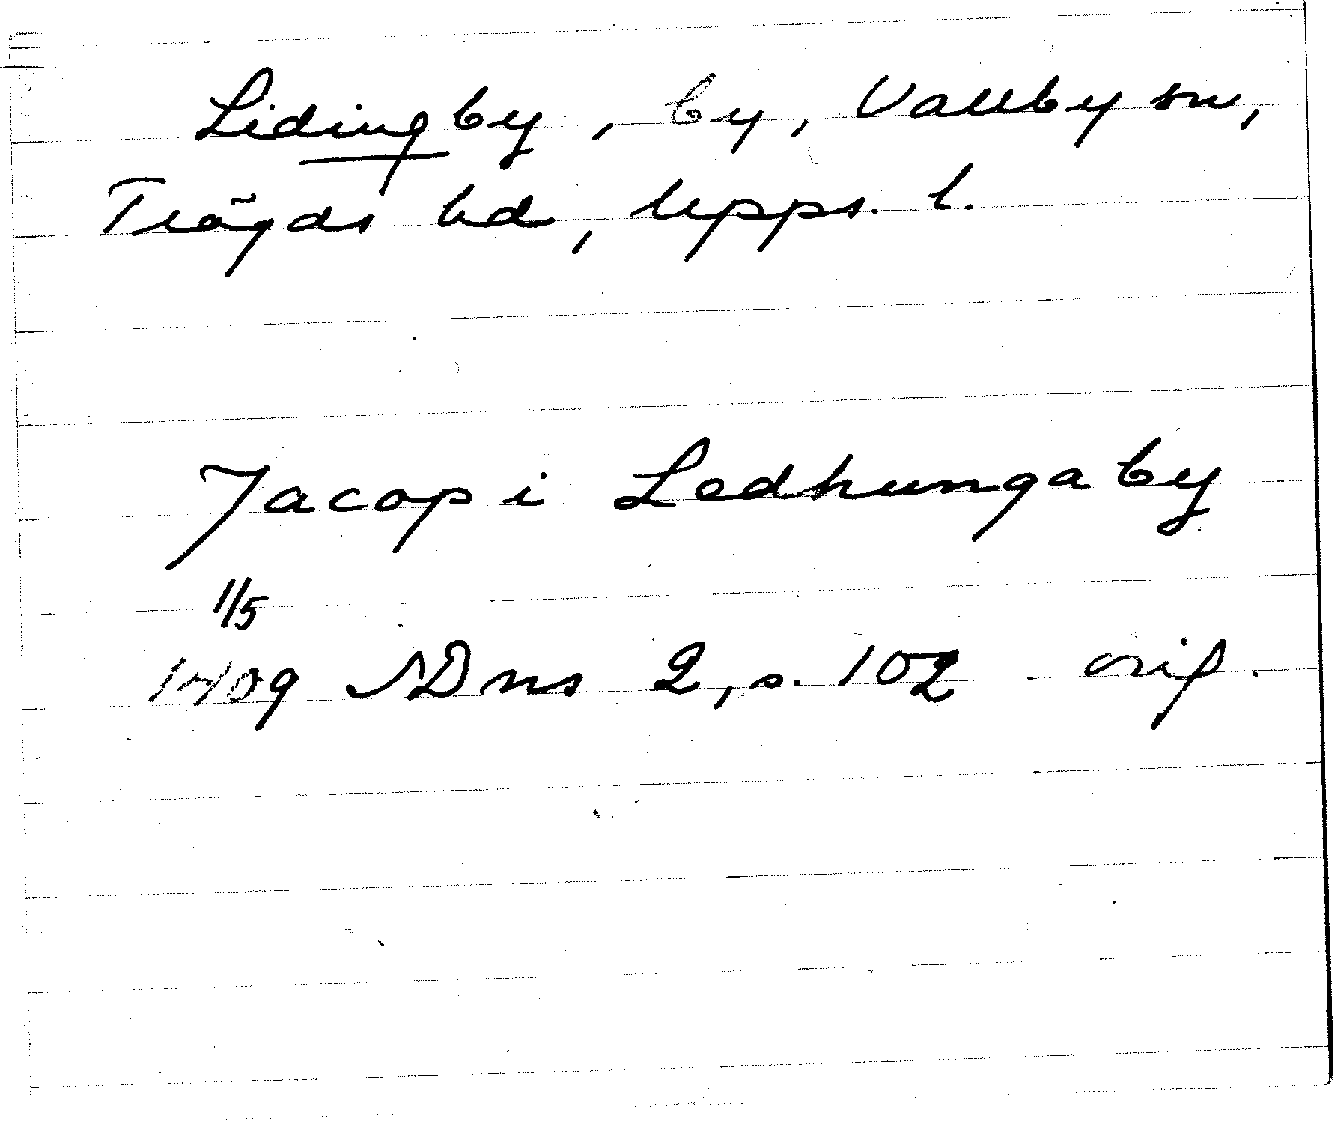 Lidingby, by, Vallby sn,
Trögds hd, Upps. l.
Jacop i Ledhungaby
1/5
1409 SDns 2, s. 102 orig.